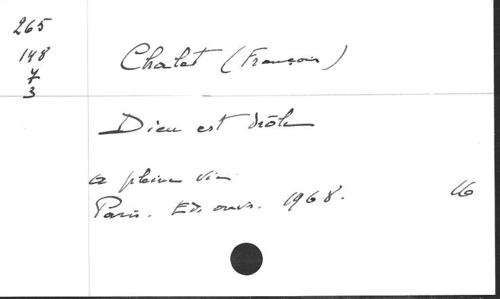 265
148
7
3
Chalet (François)
Dieu est drôle
à pleine vie
Paris. Ed. ouvr. 1968.
16